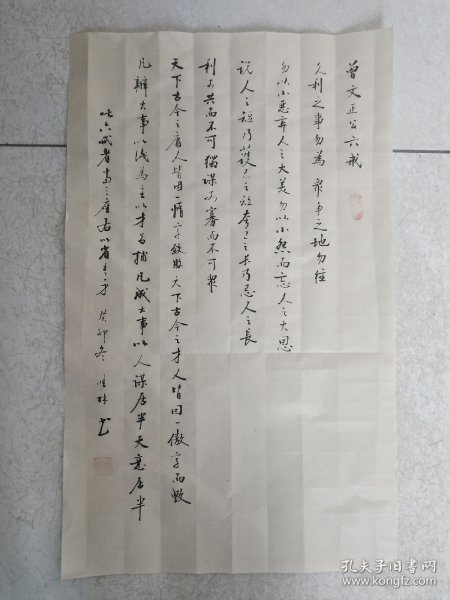 曾文正公六戒
久利之事勿为 众争之地勿往
勿以小恶弃人之大美勿以小怨而忘人之大恩
说人之短乃護己之短夸己之长乃忌人之長
利可共而不可獨謀可寡而不可眾
天下古今之庸人皆因一惰字致敗天下古今之才人皆因一傲字而敗
凡辦大事以识為主以才為補凡成大事以人谋居半天意居半
此六戒者當之座右以省 癸卯冬 林书
孔夫子旧书网
www.kongfz.com